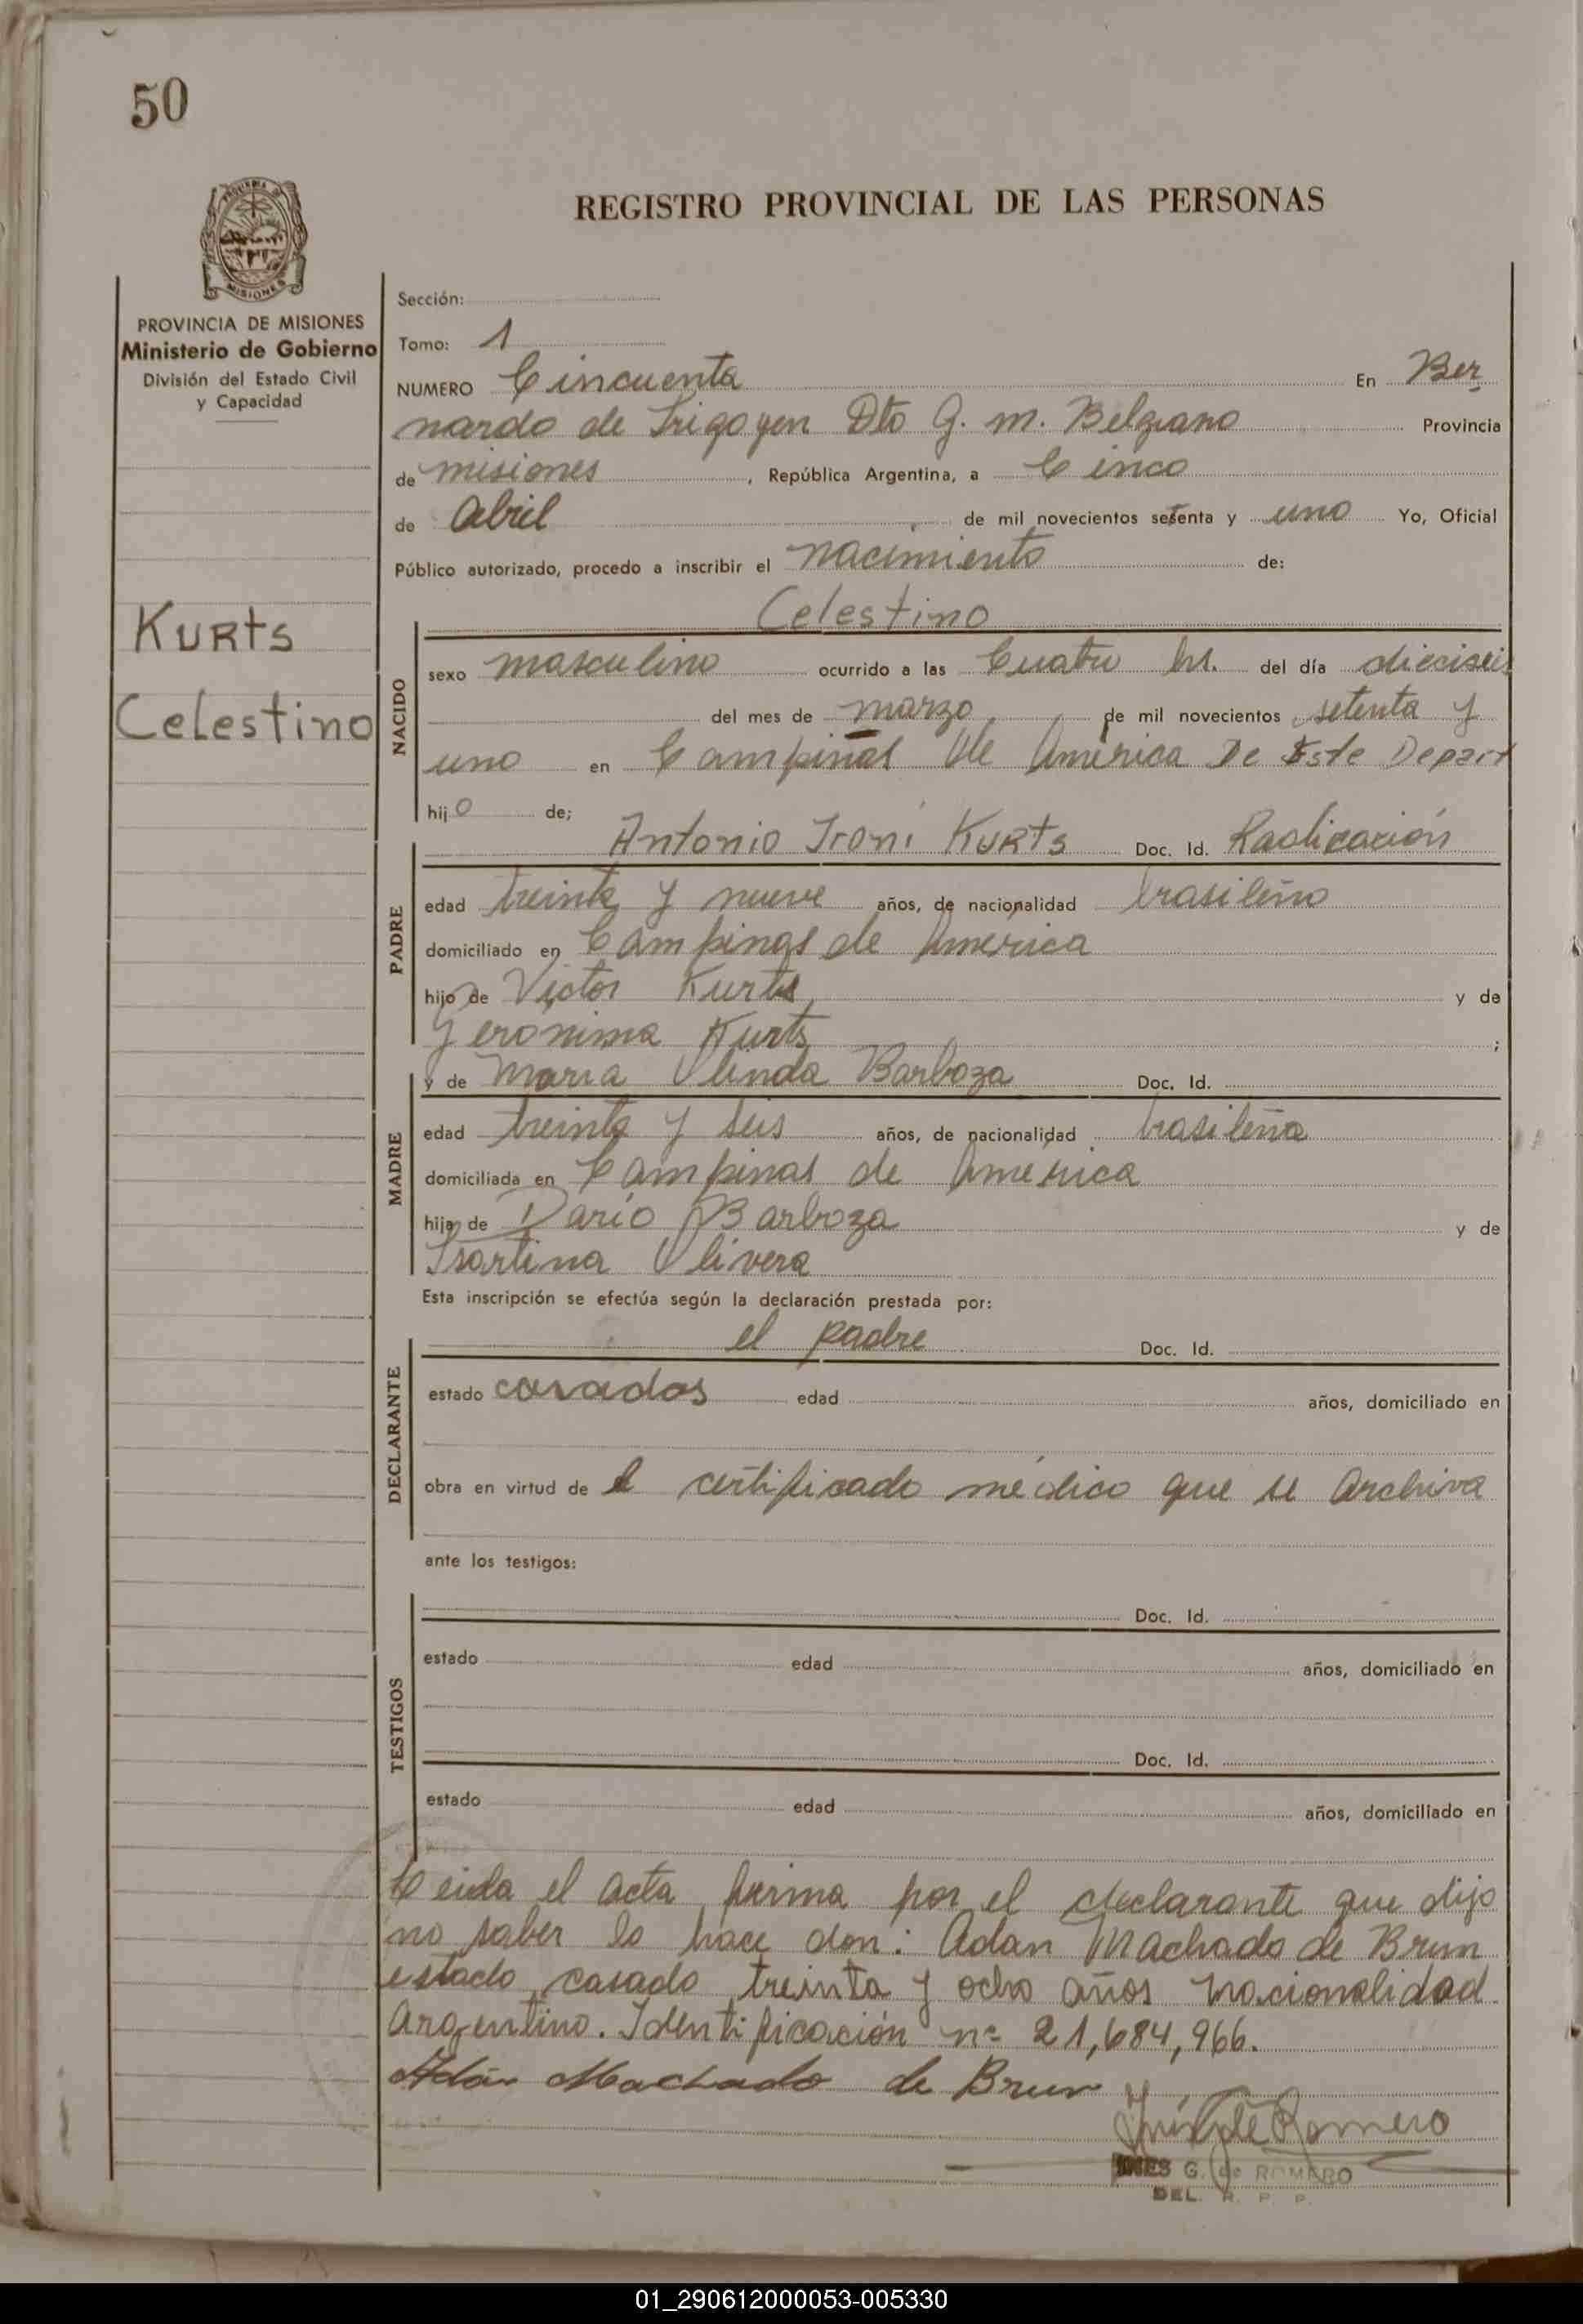 50
REGISTRO PROVINCIAL DE LAS PERSONAS
MISIONES
PROVINCIA DE MISIONES
Ministerio de Gobierno
División del Estado Civil
y Capacidad
Kurts
Celestino
Sección:
Tomo: 1
NUMERO Cincuenta En Ber
nardo de Irigoyen Dto G. M. Belgrano Provincia
de Misiones, República Argentina, a Cinco
de Abril de mil novecientos setenta y uno Yo, Oficial
Público autorizado, procedo a inscribir el nacimiento de:
Celestino
NACIDO
sexo masculino ocurrido a las Cuatro hs. del día dieciseis
del mes de marzo de mil novecientos setenta y
uno en Campinas de América De Este Depart
hijo de;
Antonio Ironi Kurts Doc. Id. Radicación
PADRE
edad treinta y nueve años, de nacionalidad brasileño
domiciliado en Campinas de América
hijo de Victor Kurts y de
Jeronima Kurts ;
y de Maria Olinda Barboza Doc. Id.
MADRE
edad treinta y seis años, de nacionalidad brasileña
domiciliada en Campinas de América
hija de Dario Barboza y de
Olivera
Esta inscripción se efectúa según la declaración prestada por:
el padre Doc. Id.
DECLARANTE
estado casados edad años, domiciliado en
obra en virtud de el certificado médico que se archiva
ante los testigos:
TESTIGOS
Doc. Id.
estado edad años, domiciliado en
Doc. Id.
estado edad años, domiciliado en
Leida el acta firma por el declarante que dijo
no saber lo hace don: Adan Machado de Brun
estado casado treinta y ocho años nacionalidad
Argentino. Identificación nº 21,684,966.
Adán Machado de Brun
Inés G de Romero
INES G. de ROMERO
DEL. R. P. P.
01_290612000053-005330